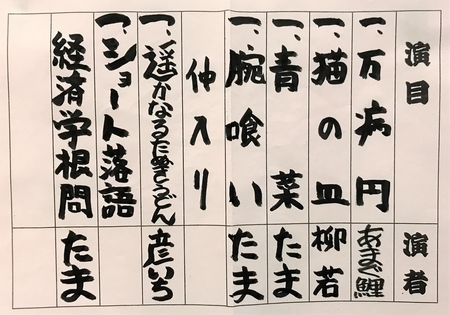 演目 演者
一、万病円 あまぐ鯉
一、猫の皿 柳若
一、青菜 たま
一、腕喰い たま
仲入り
一、遥かなるたぬきうどん 彦いち
一、ショート落語
経済学根問 たま